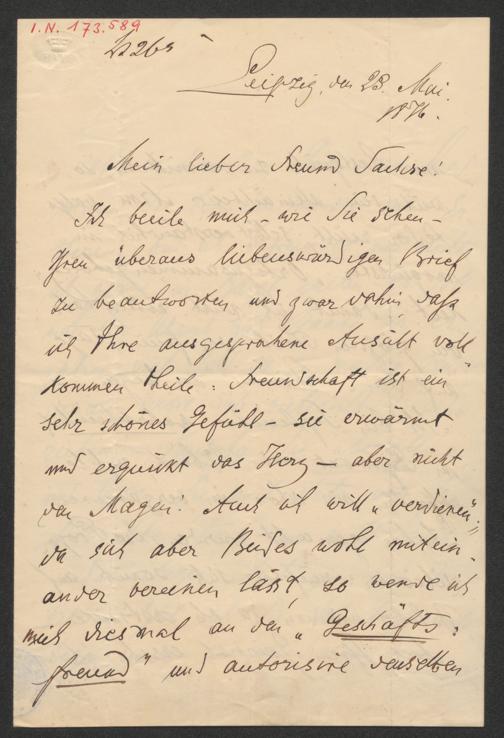 I.N. 173.589
Leipzig, den 28. Mai
1876.
Mein lieber Freund Sachse!
Ich beeile mich – wie Sie sehen –
Ihren überaus liebenswürdigen Brief
zu beantworten und zwar dahin, daß
ich Ihre ausgesprochene Ansicht voll
kommen theile: Freundschaft ist ein
sehr schönes Gefühl – sie erwärmt
und erquickt das Herz – aber nicht
den Magen! Auch ich will „verdienen";
da sich aber Beides wohl mitein-
ander vereinen lässt, so wende ich
mich diesmal an den „Geschäfts-
freund" und autorisire denselben